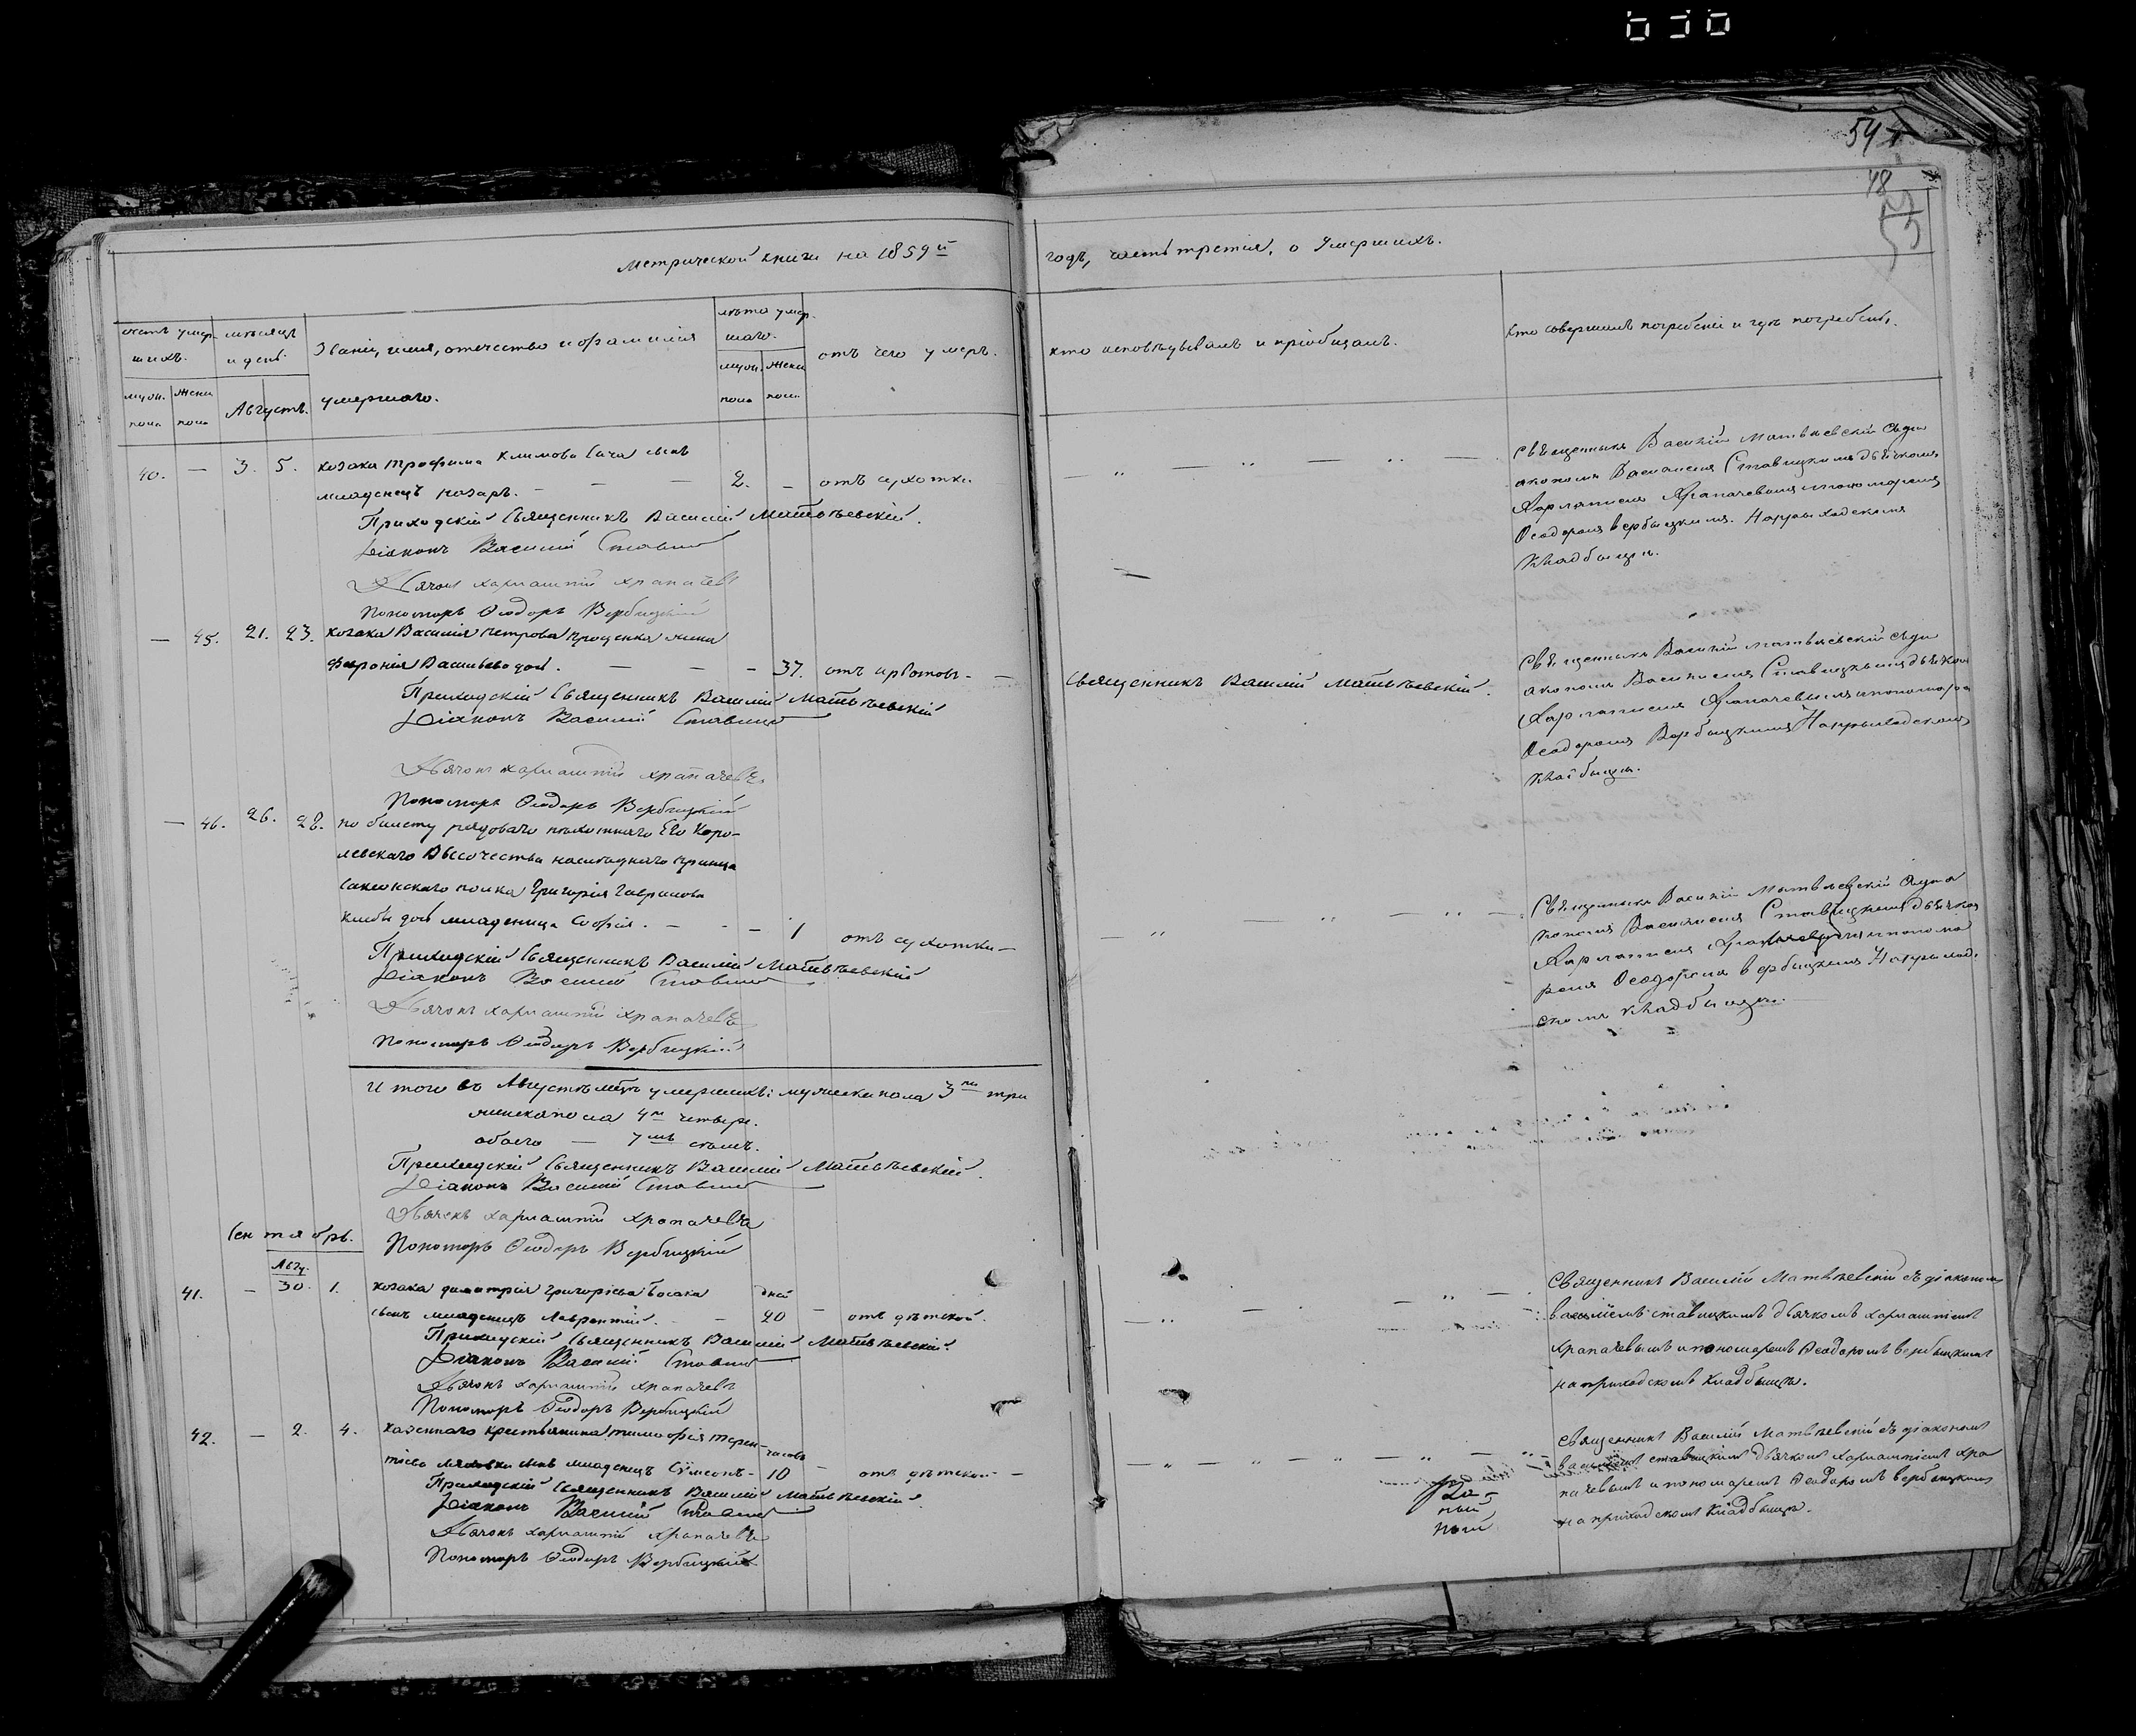 54
48
Метрической книги на 1859й
годъ, часть третія, о умершихъ.
счетъ умер-
шихъ.
мѣсяцъ
и день.
Званіе, имя, отечество и фамилія
умершаго.
лѣта умер-
шаго.
отъ чего умеръ.
кто исповѣдывалъ и пріобщалъ.
кто совершалъ погребеніе и гдѣ погребены.
муж. пола
жен. пола
Августъ.
муж. пола
жен. пола
40. — 3. 5. козака Трофима Климова сынъ
младенецъ Назаръ. — — — 2. — отъ сухотки
Приходскій Священникъ Василій Матвѣевскій.
Діаконъ Василій Ставицкій
Дьячокъ Харлампій Храпачевъ
Пономарь Ѳеодоръ Вербицкій
Священникъ Василій Матвѣевскій съ ди
акономъ Василіемъ Ставицкимъ дьячкомъ
Харлампіемъ Храпачевымъ и пономаремъ
Ѳеодоромъ Вербицкимъ. На приходскомъ
кладбищѣ.
— 45. 21. 23. козака Василія Петрова Проценка жена
Февронія Васильева дочь. — — — 37. отъ —
Приходскій Священникъ Василій Матвѣевскій
Діаконъ Василій Ставицкій
Дьячокъ Харлампій Храпачевъ
Пономарь Ѳеодоръ Вербицкій
Священникъ Василій Матвѣевскій.
Священникъ Василій Матвѣевскій съ ди
акономъ Василіемъ Ставицкимъ дьячко
Харлампіемъ Храпачевымъ и пономаре
Ѳеодоромъ Вербицкимъ На приходскомъ
кладбищѣ.
— 46. 26. 28. по билету рядоваго пѣхотнаго Его Коро-
левскаго Высочества наслѣднаго принца
Саксонскаго полка Григорія Гаврилова
дочь младеница Софія. — — — 1 отъ сухотки —
Приходскій Священникъ Василій Матвѣевскій
Діаконъ Василій Ставицкій
Дьячокъ Харлампій Храпачевъ
Пономарь Ѳеодоръ Вербицкій
Священникъ Василій Матвѣевскій съ діа
кономъ Василіемъ Ставицкимъ дьячкомъ
Харлампіемъ Храпачевымъ и понома
ремъ Ѳеодоромъ Вербицкимъ На приход.
скомъ кладбищѣ.
Итого въ Августѣ мцѣ умершихъ: мужеска пола 3ри три
женска пола 4ре четыре.
обоего — 7мь семь.
Приходскій Священникъ Василій Матвѣевскій.
Діаконъ Василій Ставицкій
Дьячекъ Харлампій Храпачевъ
Пономарь Ѳеодоръ Вербицкій
Сентябрь.
Авгу.
41. — 30. 1. козака Димитрія Григоріева дней
сынъ младенецъ Лаврентій. — — 20 — отъ дѣтской.
Приходскій Священникъ Василій Матвѣевскій.
Діаконъ Василій Ставицкій
Дьячокъ Харлампій Храпачевъ
Пономарь Ѳеодоръ Вербицкій
Священникъ Василій Матвѣевскій съ діакономъ
Василіемъ Ставицкимъ дьячкомъ Харлампіемъ
Храпачевымъ и пономаремъ Ѳеодоромъ Вербицкимъ
на приходскомъ кладбищѣ.
42. — 2. 4. казеннаго крестьянина Тимофія Терен- часовъ
тіева сынъ младенецъ Сѵмеонъ — 10 — отъ дѣтской —
Приходскій Священникъ Василій Матвѣевскій.
Діаконъ Василій Ставицкій
Дьячокъ Харлампій Храпачевъ
Пономарь Ѳеодоръ Вербицкій
Священникъ Василій Матвѣевскій съ діакономъ
Василіемъ Ставицкимъ дьячкомъ Харлампіемъ Хра
пачевымъ и пономаремъ Ѳеодоромъ Вербицкимъ
на приходскомъ кладбищѣ.